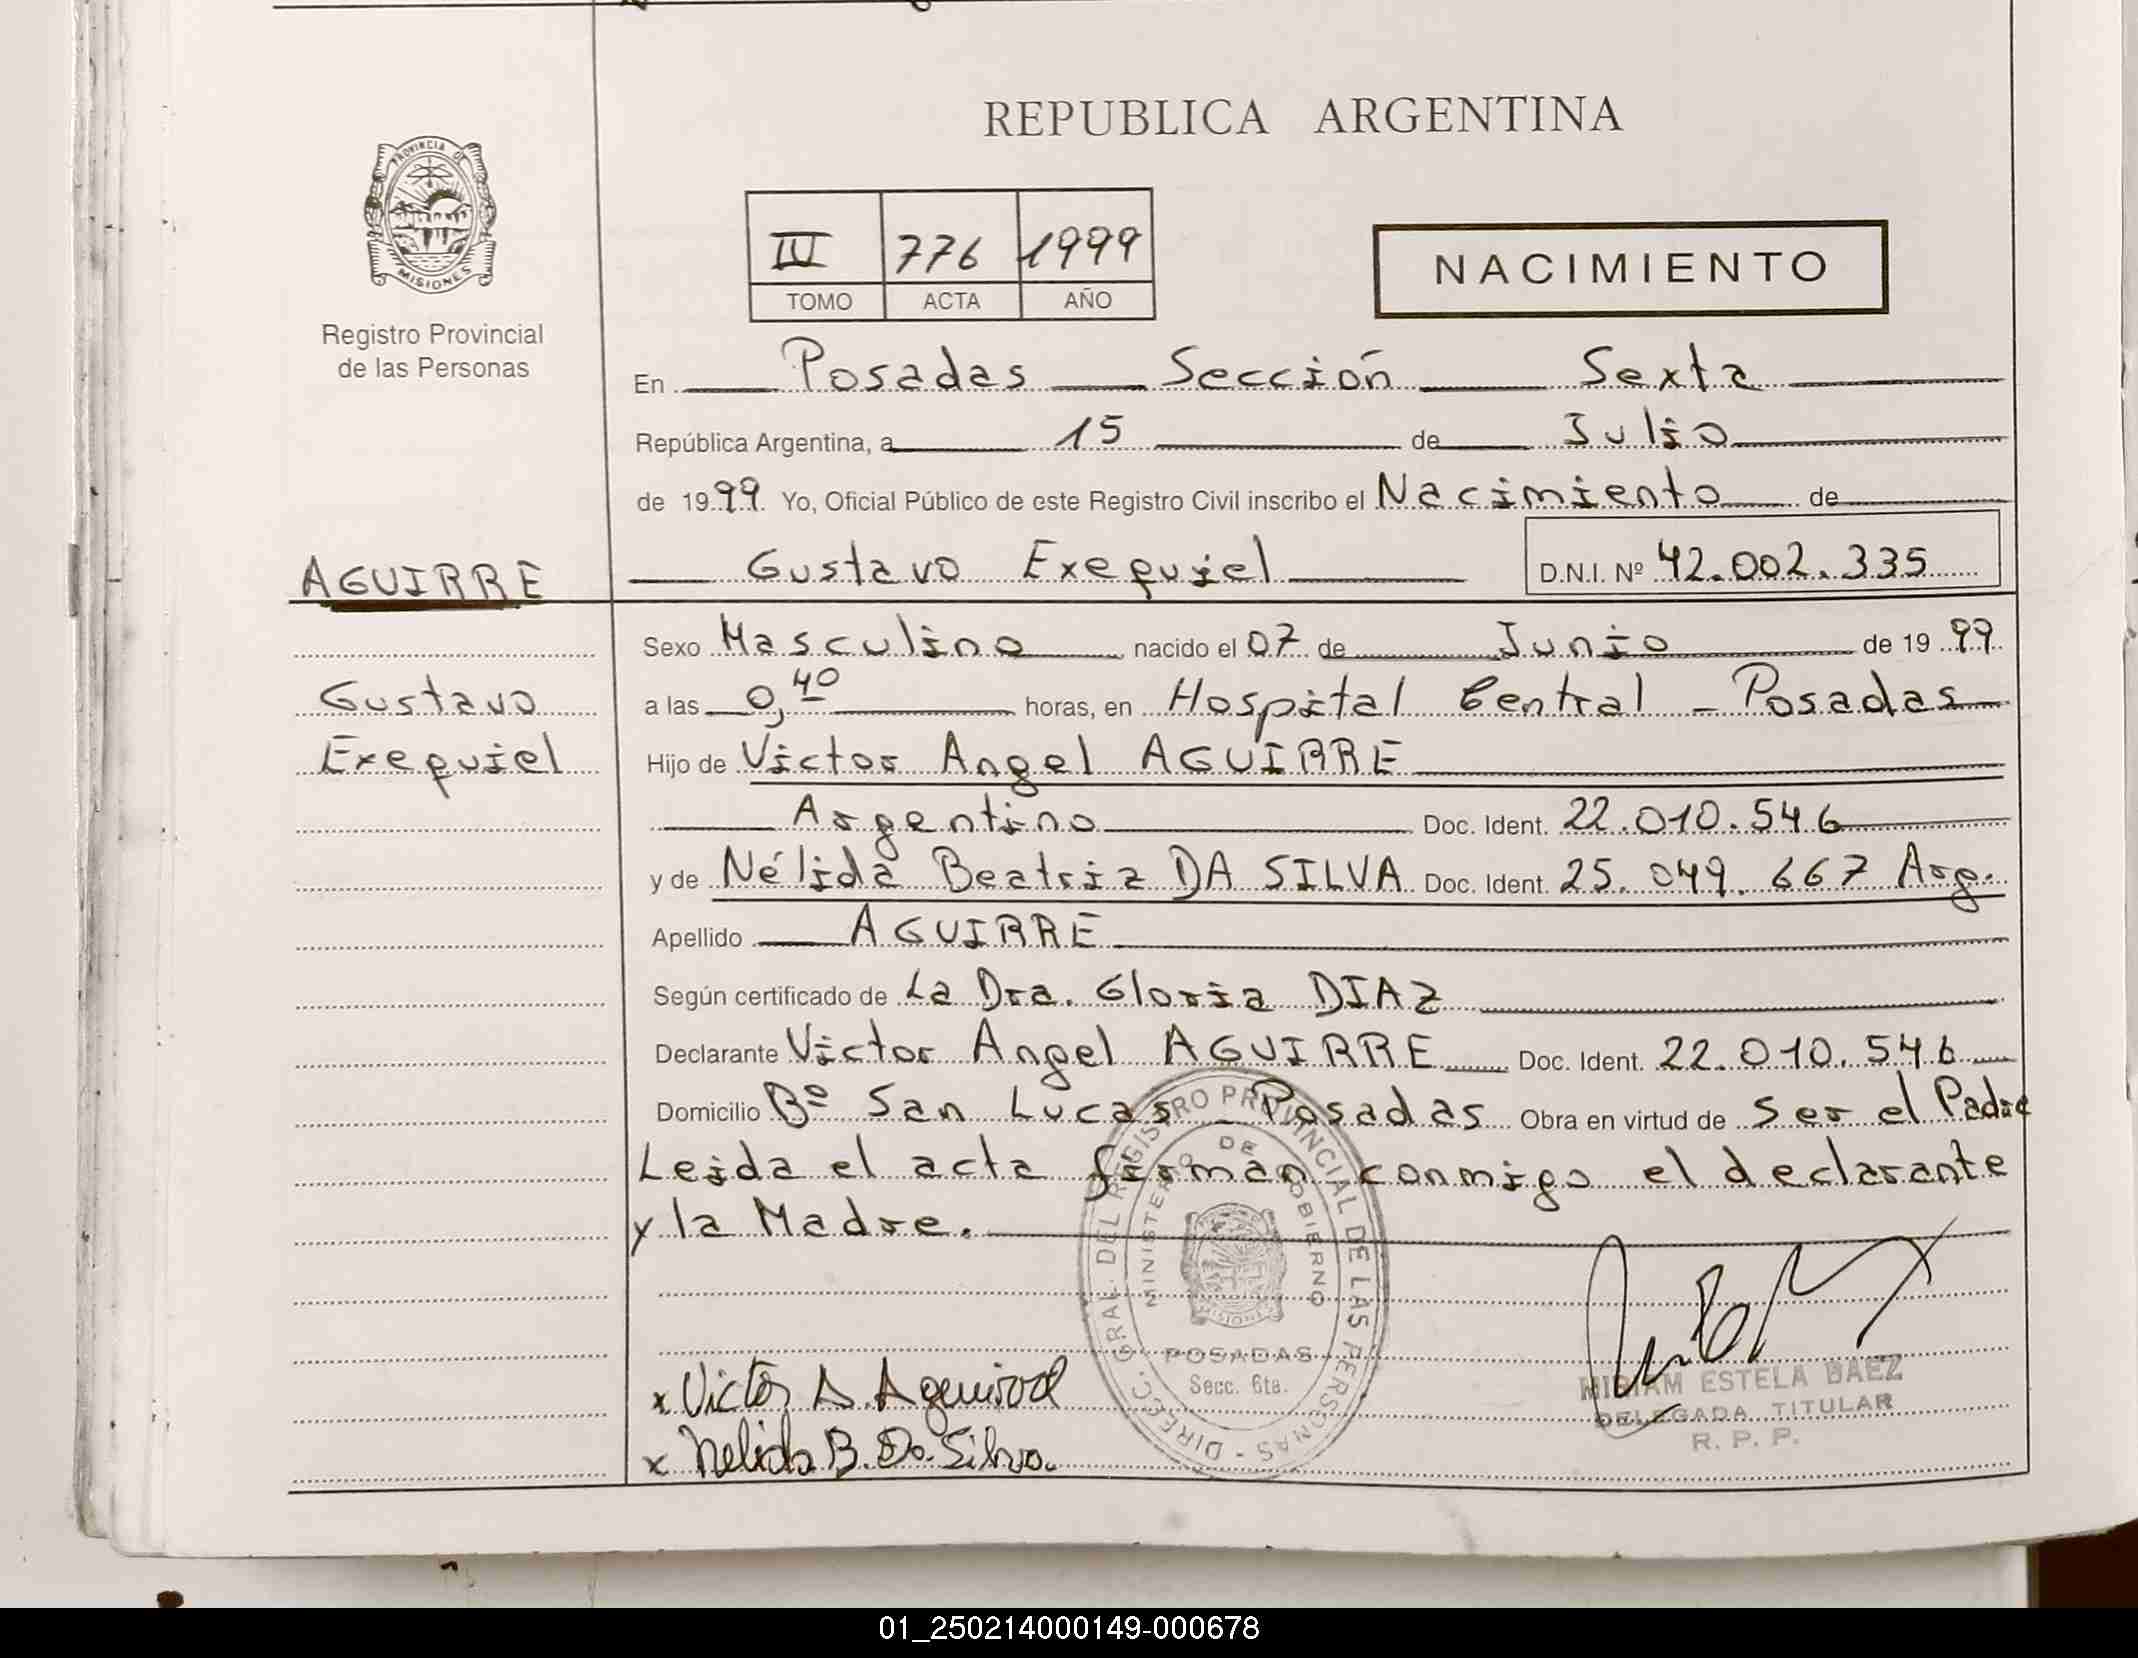 REPUBLICA ARGENTINA
PROVINCIA DE
MISIONES
Registro Provincial
de las Personas
III 776 1999
TOMO ACTA AÑO
NACIMIENTO
En Posadas Sección Sexta
República Argentina, a 15 de Julio
de 1999 Yo, Oficial Público de este Registro Civil inscribo el Nacimiento de
AGUIRRE
Gustavo Exequiel D.N.I. Nº 42.002.335
Sexo Masculino nacido el 07 de Junio de 1999
Gustavo
a las 0,40 horas, en Hospital Central - Posadas
Exequiel
Hijo de Victor Angel AGUIRRE
Argentino Doc. Ident. 22.010.546
y de Nélida Beatriz DA SILVA Doc. Ident. 25.049.667 Arg.
Apellido AGUIRRE
Según certificado de La Dra. Gloria DIAZ
Declarante Victor Angel AGUIRRE Doc. Ident. 22.010.546
Domicilio Bº San Lucas - Posadas Obra en virtud de ser el Padre
Leida el acta firman conmigo el declarante
y la Madre.
DIREC. GRAL. DEL REGISTRO PROVINCIAL DE LAS PERSONAS -
MINISTERIO DE GOBIERNO
MISIONES
POSADAS
Secc. 6ta.
x Victor A. Aguirre
x Nelida B. Da Silva.
MIRIAM ESTELA BAEZ
DELEGADA TITULAR
R. P. P.
01_250214000149-000678